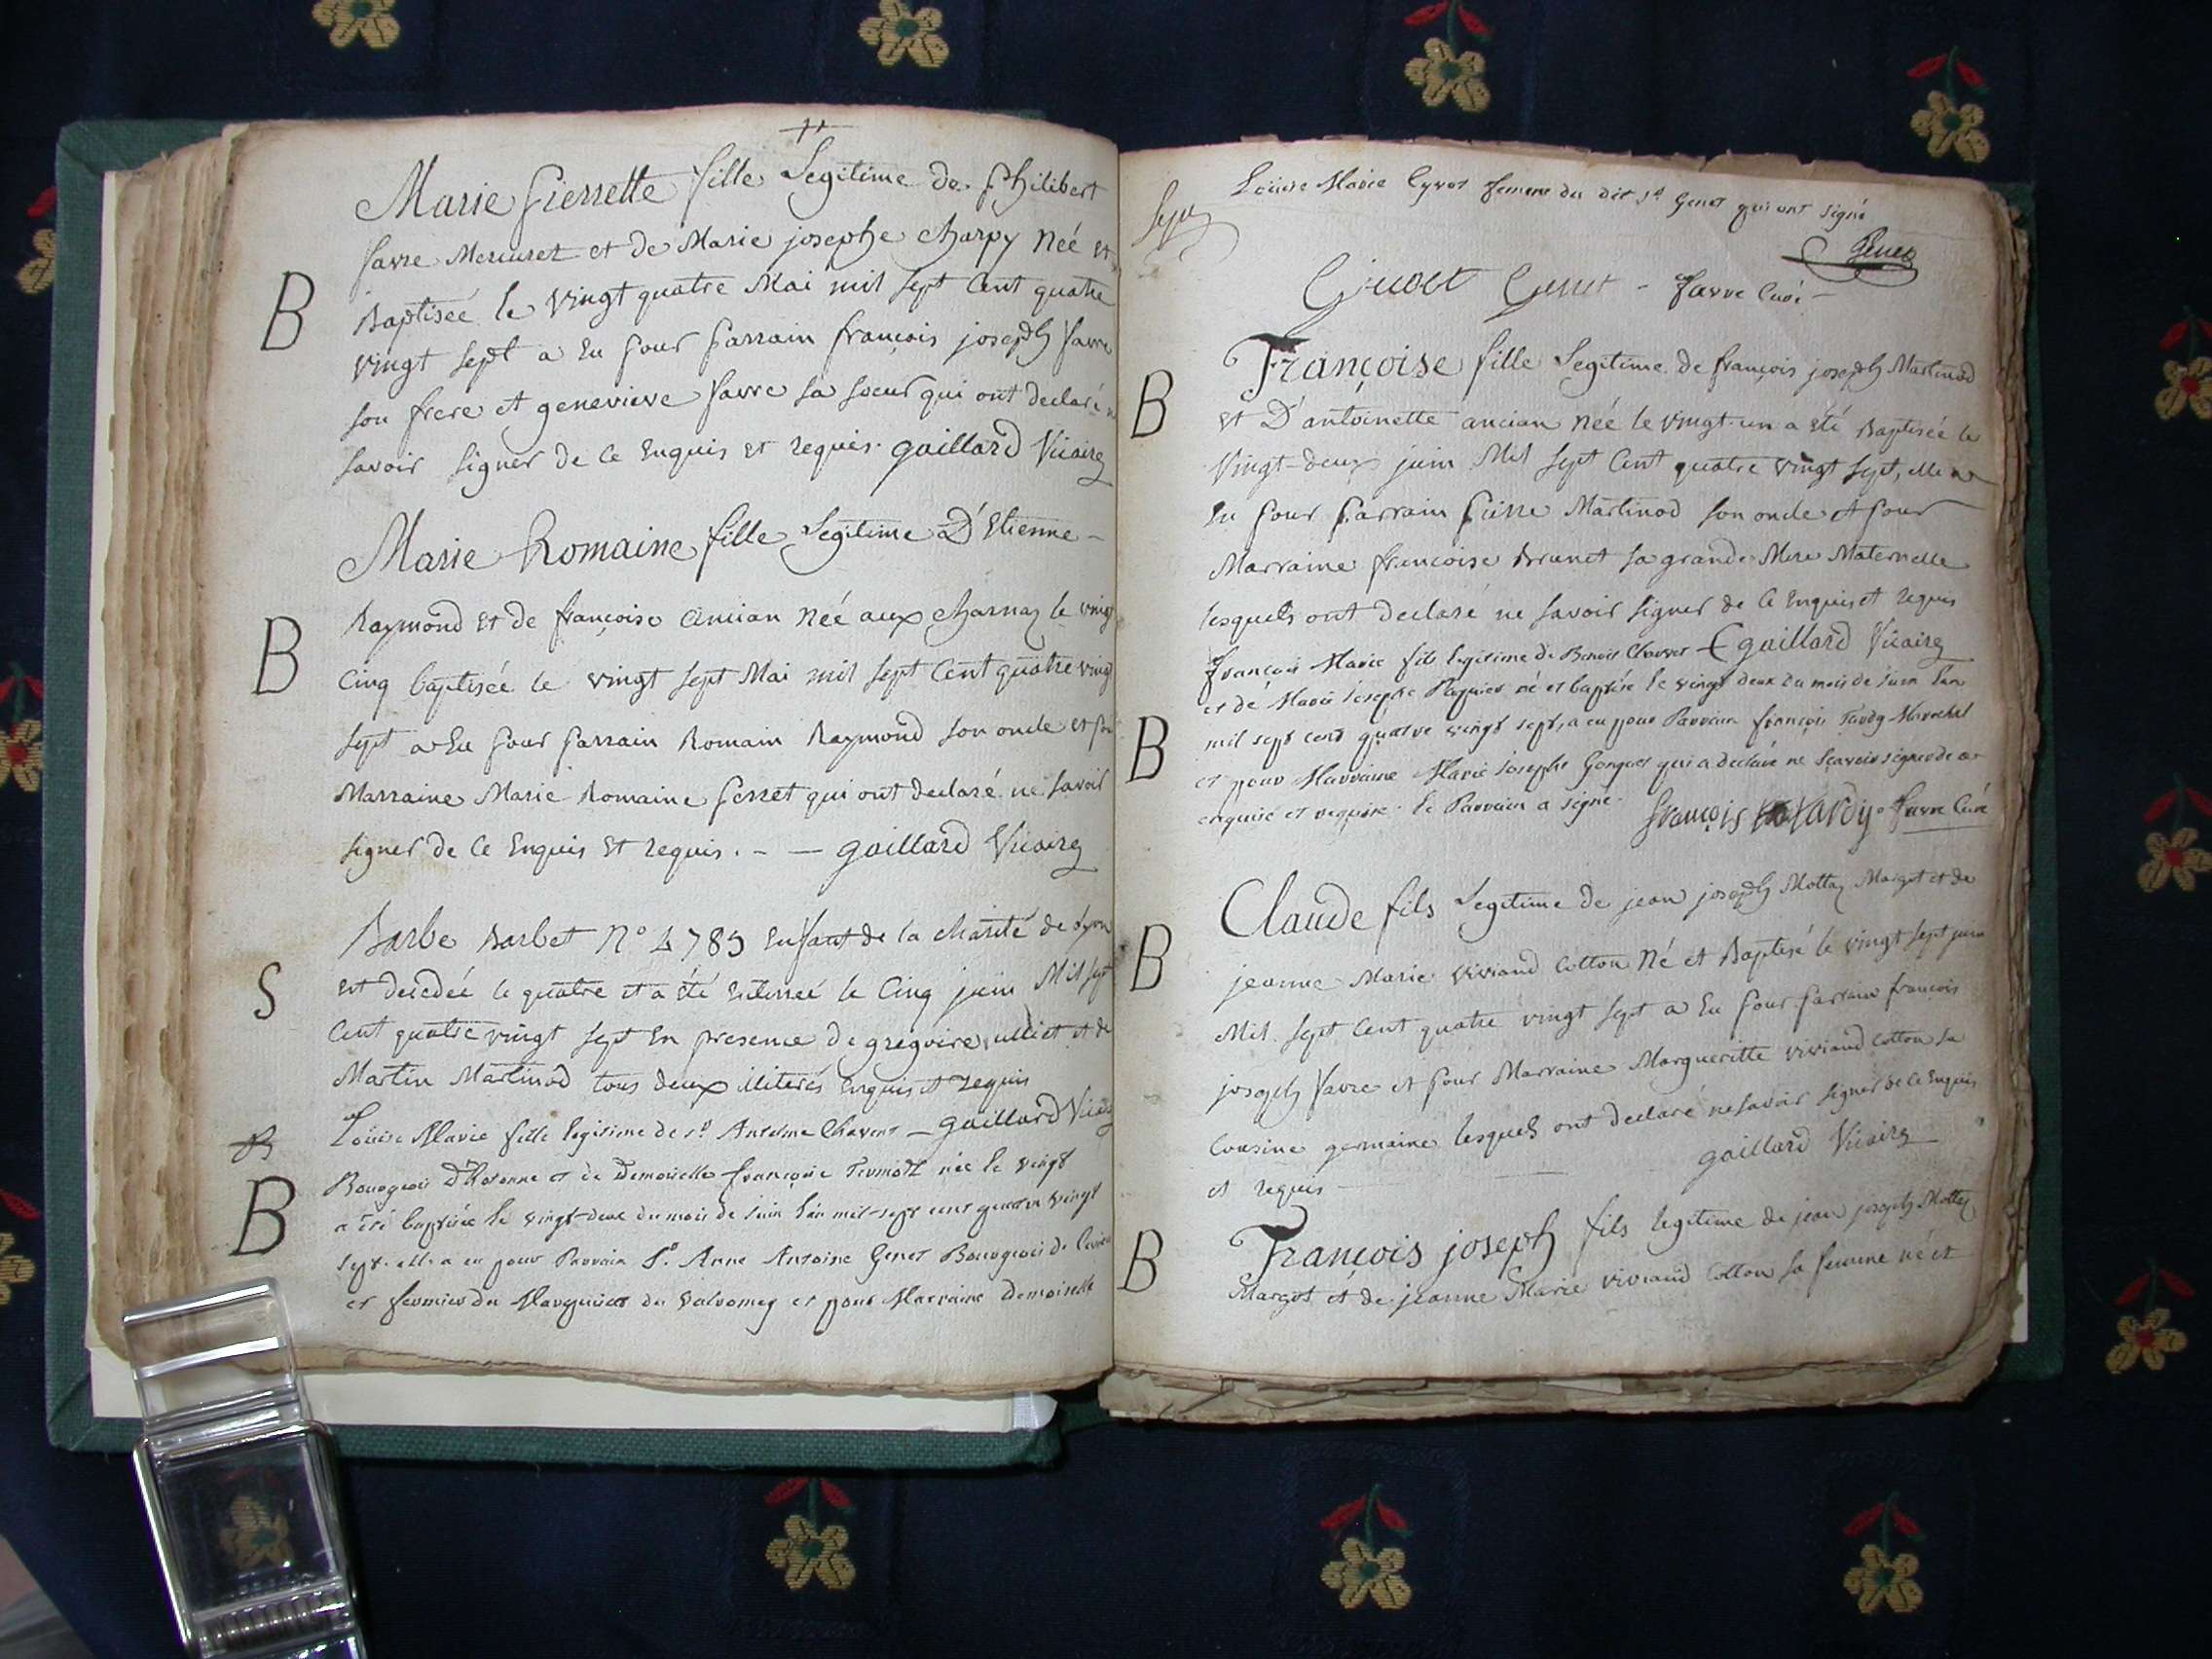 Marie Pierrette fille Legitime de Philibert
favre Mercuret et de Marie josephe charpy Neé et
B
Baptiseé le Vingt quatre Mai mil sept Cent quatre
vingt sept a Eu pour parrain françois joseph favre
son frere et genevieve favre sa soeur qui ont declaré
savoir signer de ce Enquis et requis. gaillard Vicaire
Marie Romaine fille Legitime D'Etienne
B
Raymond et de françoise ancian Neé aux charnay le vingt
Cinq baptisée le vingt sept Mai mil sept Cent quatre vingt
sept a Eu pour parrain Romain Raymond son oncle et
Marraine Marie Romaine perret qui ont declaré ne savoir
signer de ce Enquis Et requis. gaillard Vicaire
S
Barbe Barbet N° 4785 Enfant de la charité de Lyon
est decedeé le quatre et a été Enterreé le Cinq juin Mil sept
Cent quatre vingt sept En presence de gregoire et de
Martin Martinod tous deux illiterés Enquis et requis
gaillard Vicaire
Louise Marie fille legitime de sr Antelme Chavent
B
Bourgeois D'Hotonne et de Demoiselle françoise née le vingt
a été baptisée le vingt-deux du mois de juin l'an mil-sept cent quatre vingt
sept. elle a eu pour Parrain Sr. Anne Antoine Genet Bourgeois de
et fermier du Marquisat du valromey et pour Marraine Demoiselle
Louise Marie femme du dit sr Genet qui ont signé
Genet
Genet - favre Curé -
Françoise fille Legitime de françois joseph Martinod
B
et D'antoinette ancian Neé le vingt-un a été Baptiseé le
Vingt-deux juin Mil sept Cent quatre vingt sept, elle a
Eu pour parrain pierre Martinod son oncle et pour
Marraine françoise Brunet sa grande Mere Maternelle
lesquels ont declaré ne savoir signer de ce Enquis et requis
gaillard Vicaire
françois Marie fils legitime de Benoit Chavent
et de Marie Josephe Paquier né et baptisé le vingt deux du mois de juin l'an
B
mil sept cent quatre vingt sept, a eu pour Parrain françois Tardy Marechal
et pour Marraine Marie Josephe qui a declaré ne sçavoir signer de ce
enquise et requise. le Parrain a signé. françois tardy. favre Curé
Claude fils Legitime de jean joseph Mottaz Margot et de
B
jeanne Marie viviand cotton Né et Baptisé le vingt sept juin
Mil sept Cent quatre vingt sept a Eu pour parrain françois
joseph favre et pour Marraine Margueritte viviand cotton sa
Cousine germaine lesquels ont declaré ne savoir signer de ce Enquis
et requis gaillard Vicaire
B
François joseph fils legitime de jean joseph Mottaz
Margot et de jeanne Marie viviand cotton sa femme né et